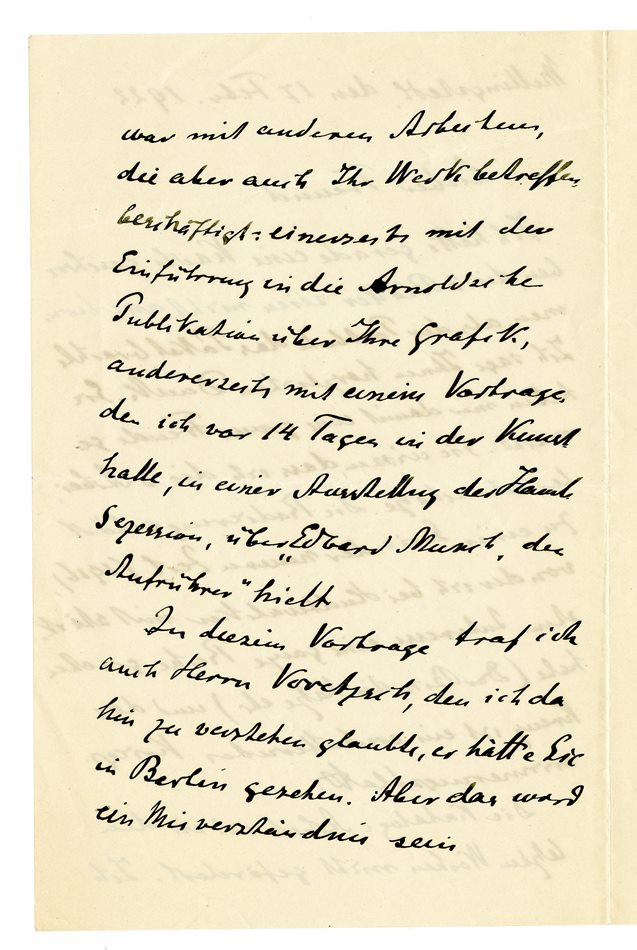 war mit anderen Arbeiten,
die aber auch Ihr Werk betreffen
beschäftigt: einerseits mit der
Einführung in die Arnoldsche
Publikation über Ihre Grafik,
andererseits mit einem Vortrage,
den ich vor 14 Tagen in der Kunst
halle, in einer Ausstellung der Hamb
Sezession, über „Edvard Munch, der
Aufrührer" hielt
In diesem Vortrage traf ich
auch Herrn Voretzsch, den ich da
hin zu verstehen glaubte, er hätte Sie
in Berlin gesehen. Aber das ward
ein Misverständnis sein